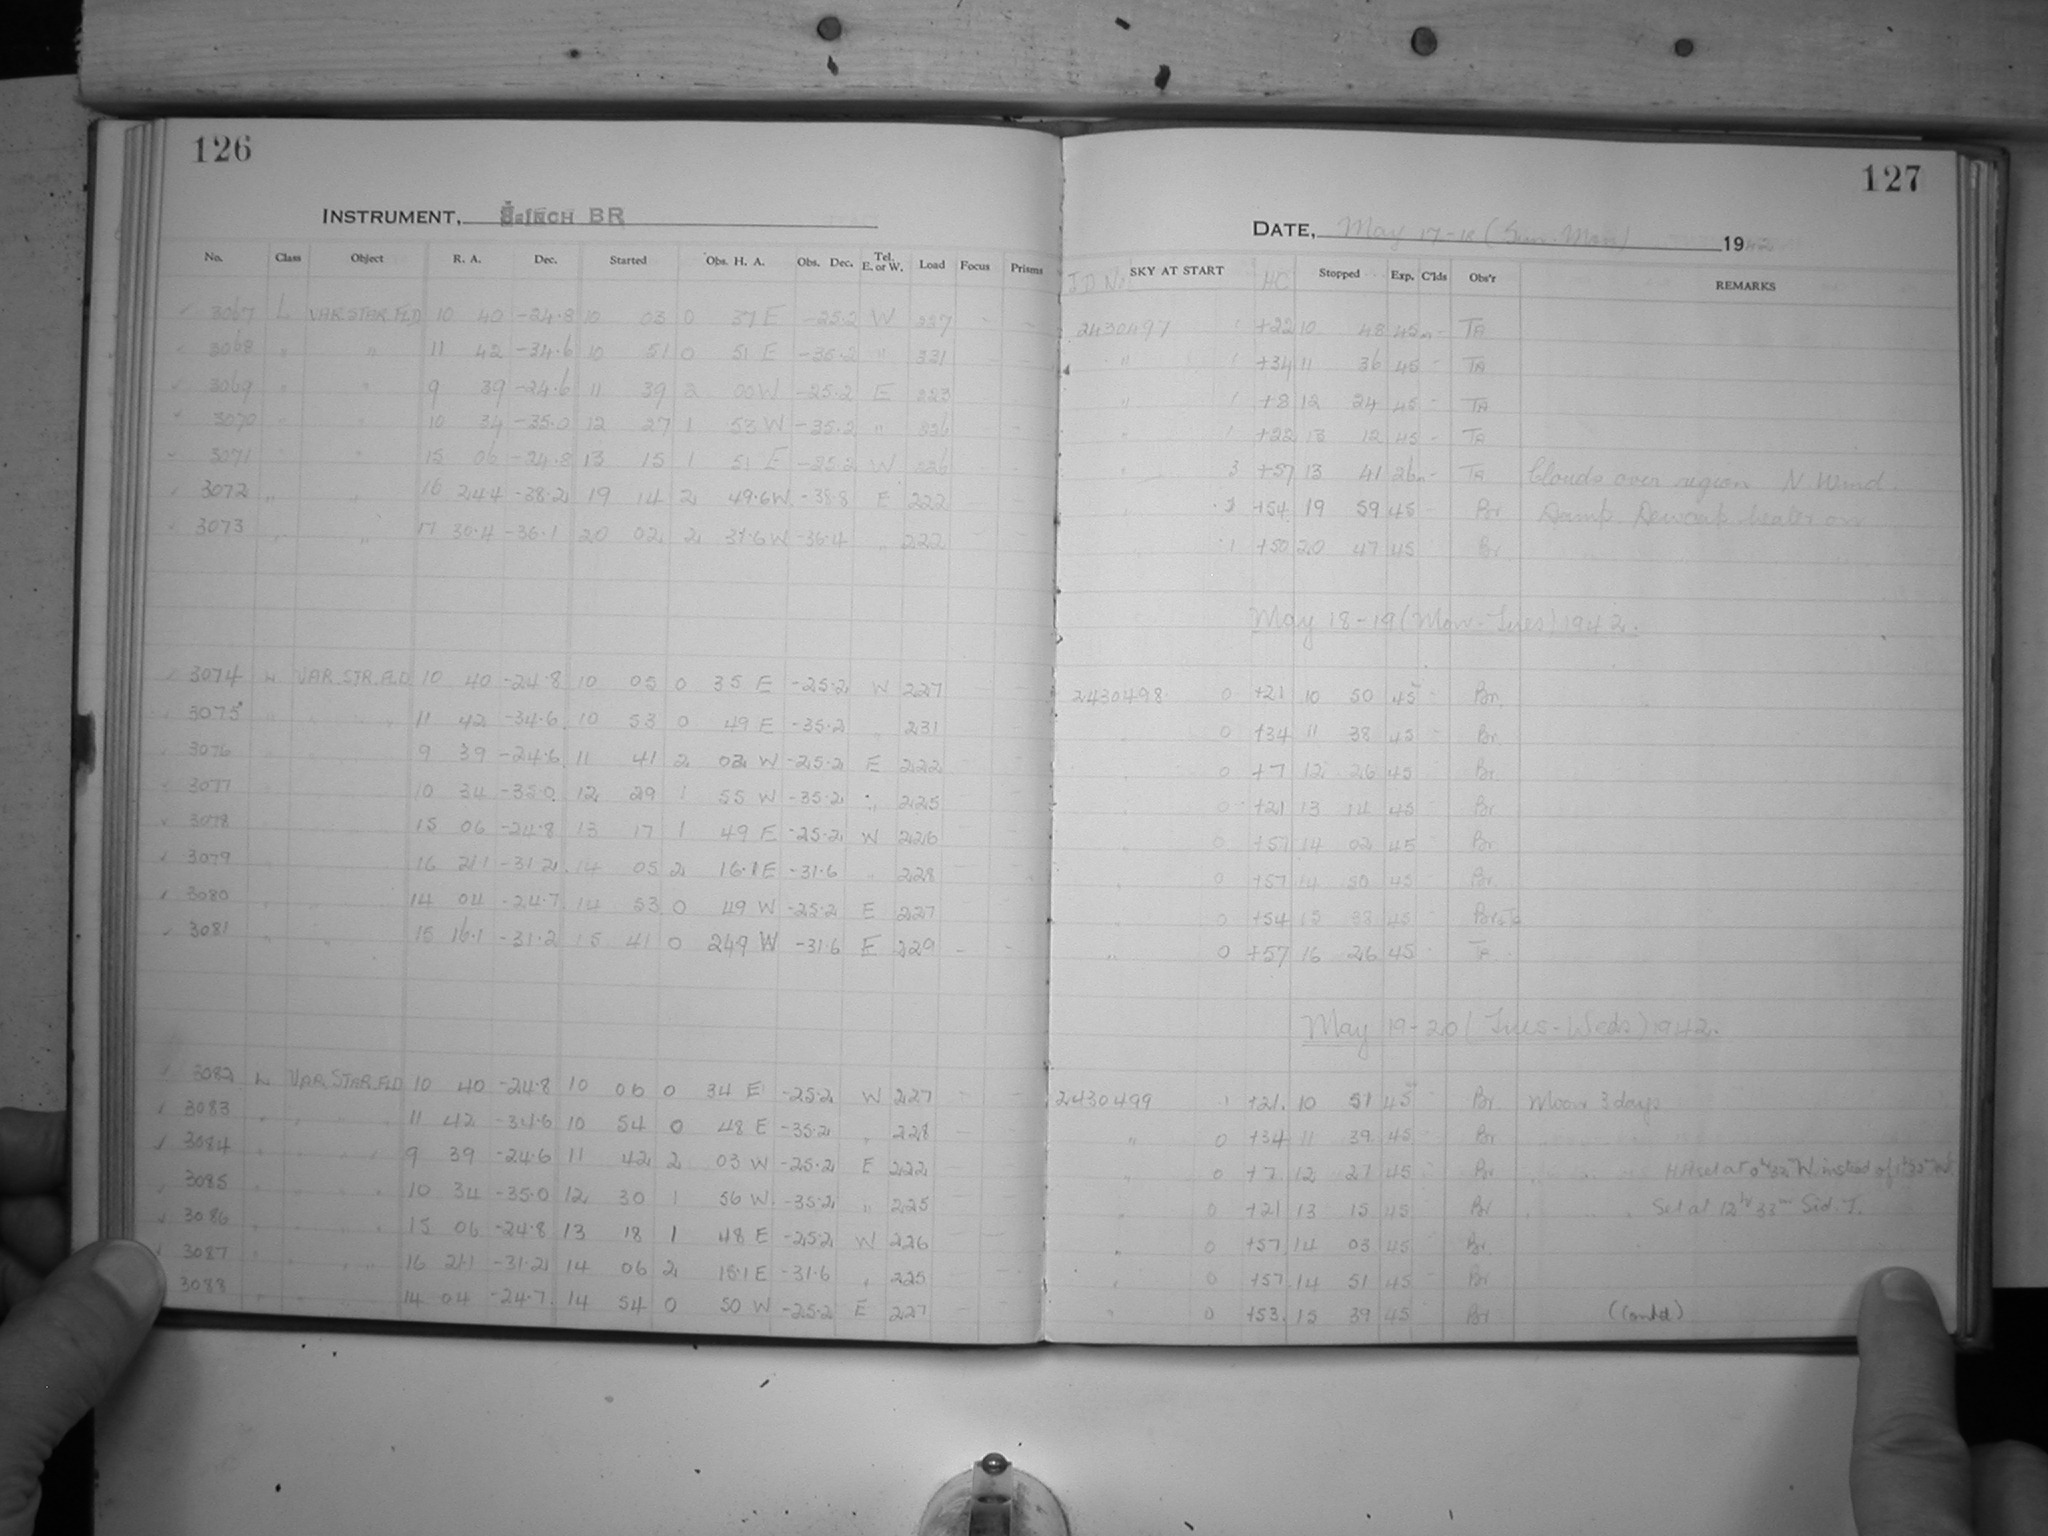 126
INSTRUMENT, 8-INCH BR
No. Class Object R. A. Dec. Started Obs. H. A. Obs. Dec. Tel. E. or W. Load Focus Prisms
3067 L VAR.STAR.FLD 10 40 -24.8 10 03 0 37 E -25.2 W
3068 " " 11 42 -34.6 10 51 0 51 E -35.2 "
3069 " " 9 39 -24.6 11 39 2 00 W -25.2 E
3070 " " 10 34 -35.0 12 27 1 53 W -35.2 "
3071 " " 15 06 -24.8 13 15 1 51 E -25.2 W
3072 " " 16 24.4 -38.2 19 14 2 49.6 W -38.8 E 222
3073 " " 17 30.4 -36.1 20 02 2 31.6 W -36.4 " 222
3074 L VAR.STR.FLD 10 40 -24.8 10 05 0 35 E -25.2 W 227
3075 " " 11 42 -34.6 10 53 0 49 E -35.2 " 231
3076 " " 9 39 -24.6 11 41 2 02 W -25.2 E 222
3077 " " 10 34 -35.0 12 29 1 55 W -35.2 " 225
3078 " " 15 06 -24.8 13 17 1 49 E -25.2 W 226
3079 " " 16 21.1 -31.2 14 05 2 16.1 E -31.6 " 228
3080 " " 14 04 -24.7 14 53 0 49 W -25.2 E 227
3081 " " 15 16.1 -31.2 15 41 0 24.9 W -31.6 E 229
3082 L VAR.STAR.FLD 10 40 -24.8 10 06 0 34 E -25.2 W 227
3083 " " 11 42 -34.6 10 54 0 48 E -35.2 " 228
3084 " " 9 39 -24.6 11 42 2 03 W -25.2 E 222
3085 " " 10 34 -35.0 12 30 1 56 W -35.2 " 225
3086 " " 15 06 -24.8 13 18 1 48 E -25.2 W 226
3087 " " 16 21.1 -31.2 14 06 2 15.1 E -31.6 " 225
3088 " " 14 04 -24.7 14 54 0 50 W -25.2 E 227
127
DATE, May 17-18 (Sun-Mon) 1942
J.D. No. SKY AT START HC Stopped Exp. C'lds Obs'r REMARKS
2430497 1 +22 10 48 45m - TA
" 1 +34 11 36 45 - TA
" 1 +8 12 24 45 - TA
" 1 +22 13 12 45 - TA
" 3 +57 13 41 26m - TA Clouds over region N Wind.
" +54 19 59 45 - Br Damp. Dewcap heater on
" 1 +50 20 47 45 Br
May 18-19 (Mon-Tues) 1942.
2430498 0 +21 10 50 45 - Br.
" 0 +34 11 38 45 - Br.
" 0 +7 12 26 45 - Br
" 0 +21 13 14 45 Br
" 0 +57 14 02 45 Br
" 0 +57 14 50 45 Br
" 0 +54 15 38 45 Br+Ta
" 0 +57 16 26 45 - TA
May 19-20 (Tues-Weds) 1942.
2430499 1 +21 10 51 45 - Br Moon 3 days
" 0 +34 11 39 45 - Br
" 0 +7 12 27 45 Br H.A set at 0h 32m W. instead of
" 0 +21 13 15 45 Br Set at 12hr 33m Sid. T.
" 0 +57 14 03 45 Br
" 0 +57 14 51 45 - Br
" 0 +53 15 39 45 Br (Contd)